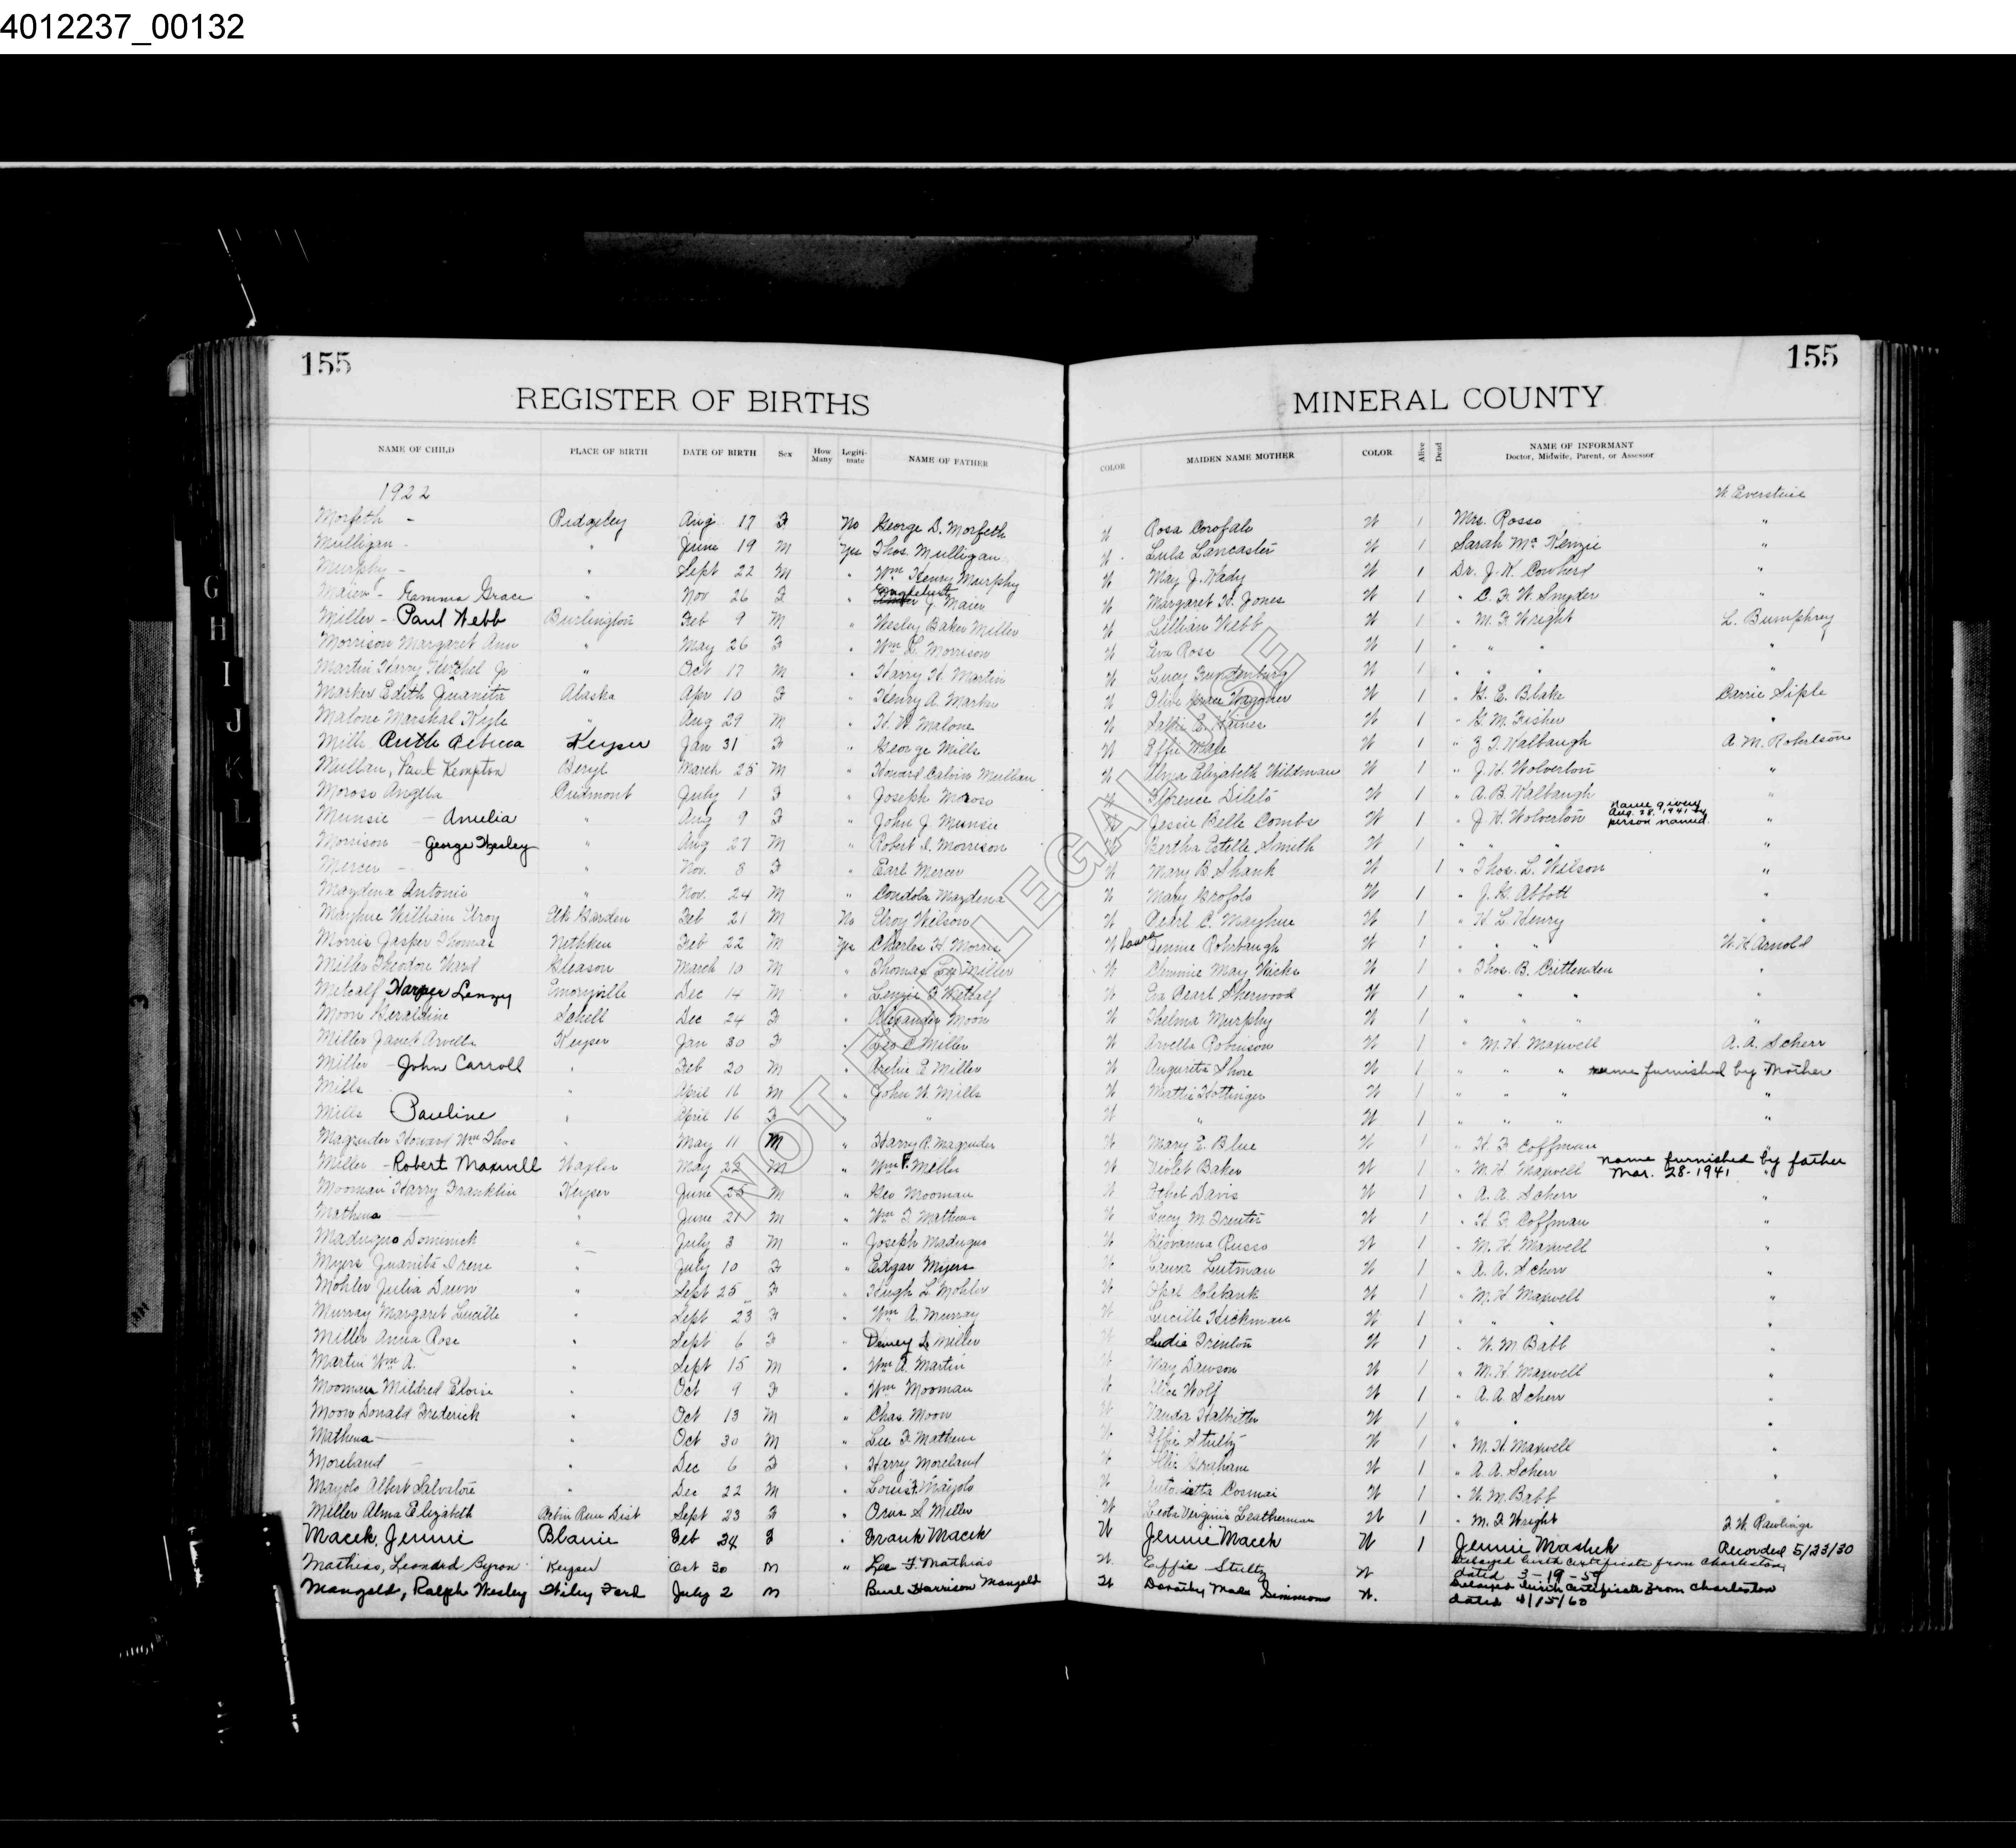 4012237_00132
155 155
REGISTER OF BIRTHS MINERAL COUNTY
NAME OF CHILD PLACE OF BIRTH DATE OF BIRTH Sex How Many Legiti-mate NAME OF FATHER COLOR MAIDEN NAME MOTHER COLOR Alive Dead NAME OF INFORMANT Doctor, Midwife, Parent, or Assessor
1922 W. Everstine
Morfeth - Ridgeley Aug 17 F No George D. Morfeth W Rosa Corofale W 1 Mrs. Rosso "
Mulligan - " June 19 M Yes Thos. Mulligan W Lula Lancaster W 1 Sarah Mc Kenzie "
Murphy - " Sept 22 M " Wm Henry Murphy W May J. Kady W 1 Dr. J. W. Cowherd "
Maier - Emma Grace " Nov 26 F " Engelbert J. Maier W Margaret H. Jones W 1 " C. F. W. Snyder "
Miller - Paul Webb Burlington Feb 9 M " Wesley Baker Miller W Lillian Webb W 1 " M. F. Wright L. Bumphrey
Morrison Margaret Ann " May 26 F " Wm L. Morrison W Eva Rose W 1 " " " "
Martin Harry Hetzhel Jr " Oct 17 M " Harry H. Martin W Lucy Fundenburg W 1 " " " "
Marker Edith Juanita Alaska Apr 10 F " Henry A. Marker W Olive Grace Wagoner W 1 " G. E. Blake Carrie Siple
Malone Marshal Kyle " Aug 29 M " H. W. Malone W Sallie E. Hiner W 1 " G. M. Fisher "
Mills Ruth Rebecca Keyser Jan 31 F " George Mills W Effie W 1 " Z. T. Kalbaugh A. M. Robertson
Mullan, Paul Kempton Beryl March 25 M " Howard Calvin Mullan W Elizabeth Wildman W 1 " J. H. Wolverton "
Moroso Angela Piedmont July 1 F " Joseph Moroso W Florence Dileto W 1 " A. B. Kalbaugh "
Munsie - Amelia " Aug 9 F " John J. Munsie W Jessie Belle Combs W 1 " J. H. Wolverton name given Aug. 28, 1941 by person named. "
Morrison - George Wesley " Aug 27 M " Robert I. Morrison W Bertha Estelle Smith W 1 " " " "
Mercer - " Nov. 8 F " Earl Mercer W Mary B. Shank W 1 " Thos. L. Wilson "
Mazdena Antonio " Nov. 24 M " Condola Mazdena W Mary Grofolo W 1 " J. G. Abbott "
Mayhue William Elroy Elk Garden Feb 21 M No Elroy Wilson W Pearl C. Mayhue W 1 " H. L. Henry "
Morris Jasper Thomas Nethken Feb 22 M Yes Charles H. Morris W Laura Jennie Rohrbaugh W 1 " " " W. H. Arnold
Miller Theodore Ward Gleason March 10 M " Thomas Lee Miller W Minnie May Hicks W 1 " Thos. B. Crittenden "
Metcalf Harper Lenzy Emoryville Dec 14 M " Lenzie F. Metcalf W Eva Pearl Sherwood W 1 " " " "
Moon Geraldine Schell Dec 24 F " Alexander Moon W Thelma Murphy W 1 " " " "
Miller Janet Arvella Keyser Jan 30 F " Geo C. Miller W Arvella Robinson W 1 " M. H. Maxwell A. A. Scherr
Miller - John Carroll " Feb 20 M " Archie E. Miller W Augusta Shore W 1 " " " name furnished by Mother
Mills " April 16 M " John W. Mills W Mattie Hottinger W 1 " " " "
Mills Pauline " April 16 F " W " W 1 " " " "
Magruder Howard Wm Thos " May 11 M " Harry R. Magruder W Mary E. Blue W 1 " H. F. Coffman "
Miller - Robert Maxwell Waxler May 22 M " Wm F. Miller W Violet Baker W 1 " M. H. Maxwell name furnished by father Mar. 28-1941
Mooman Harry Franklin Keyser June 25 M " Geo Mooman W Ethel Davis W 1 " A. A. Scherr "
Mathena " June 21 M " Wm T. Mathena W Lucy M. Trenter W 1 " H. F. Coffman "
Maduguo Dominick " July 3 M " Joseph Maduguo W Giovanna Russo W 1 " M. H. Maxwell "
Myers Juanita Irene " July 10 F " Edgar Myers W Laura Lutman W 1 " A. A. Scherr "
Mohler Julia Dawn " Sept 25 F " Hugh L. Mohler W Opal Colebank W 1 " M. H. Maxwell "
Murray Margaret Lucille " Sept 23 F " Wm A. Murray W Lucille Hickman W 1 " " " "
Miller Anna Rose " Sept 6 F " Dewey L. Miller W Sudie Trenton W 1 " W. M. Babb "
Martin Wm A. " Sept 15 M " Wm A. Martin W May Dawson W 1 " M. H. Maxwell "
Mooman Mildred Eloise " Oct 9 F " Wm Mooman W Alice Wolf W 1 " A. A. Scherr "
Moon Donald Frederick " Oct 13 M " Chas. Moon W Vanda Halbritter W 1 " " "
Mathena " Oct 30 M " Lee F. Mathena W Effie Stultz W 1 " M. H. Maxwell "
Moreland " Dec 6 F " Harry Moreland W Graham W 1 " A. A. Scherr "
Mayolo Albert Salvatore " Dec 22 M " Louis F. Mayolo W Cosmai W 1 " W. M. Babb "
Miller Alma Elizabeth Cabin Run Dist Sept 23 F " Orus S. Miller W Leota Virginia Leatherman W 1 " M. F. Wright F. W. Rawlings
Macek, Jennie Blaine Feb 24 F " Frank Macek W Jennie Macek W 1 Jennie Mashek Recorded 5/23/30
Mathias, Leonard Byron Keyser Oct 30 M " Lee F. Mathias W. Effie Stultz W Delayed birth certificate from Charleston, dated 3-19-59
Mangold, Ralph Wesley Wiley Ford July 2 M Burl Harrison Mangold W Dorothy Mae Simmons W. Delayed birth certificate from Charleston dated 4/15/60
NOT FOR LEGAL USE
G
H
I
J
K
L
3